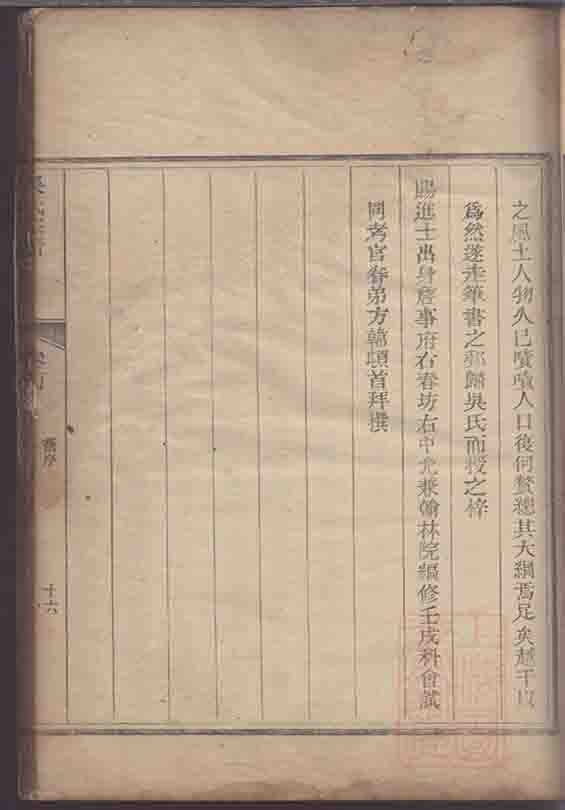 之風土人物久已嘖嘖人口後何贅總其大綱焉足矣越千曰
為然遂走筆書之郵歸吳氏而授之梓
賜進士出身詹事府右春坊右中允兼翰林院編修壬戌科會試
同考官眷弟方翰頓首拜撰
舊序
十六